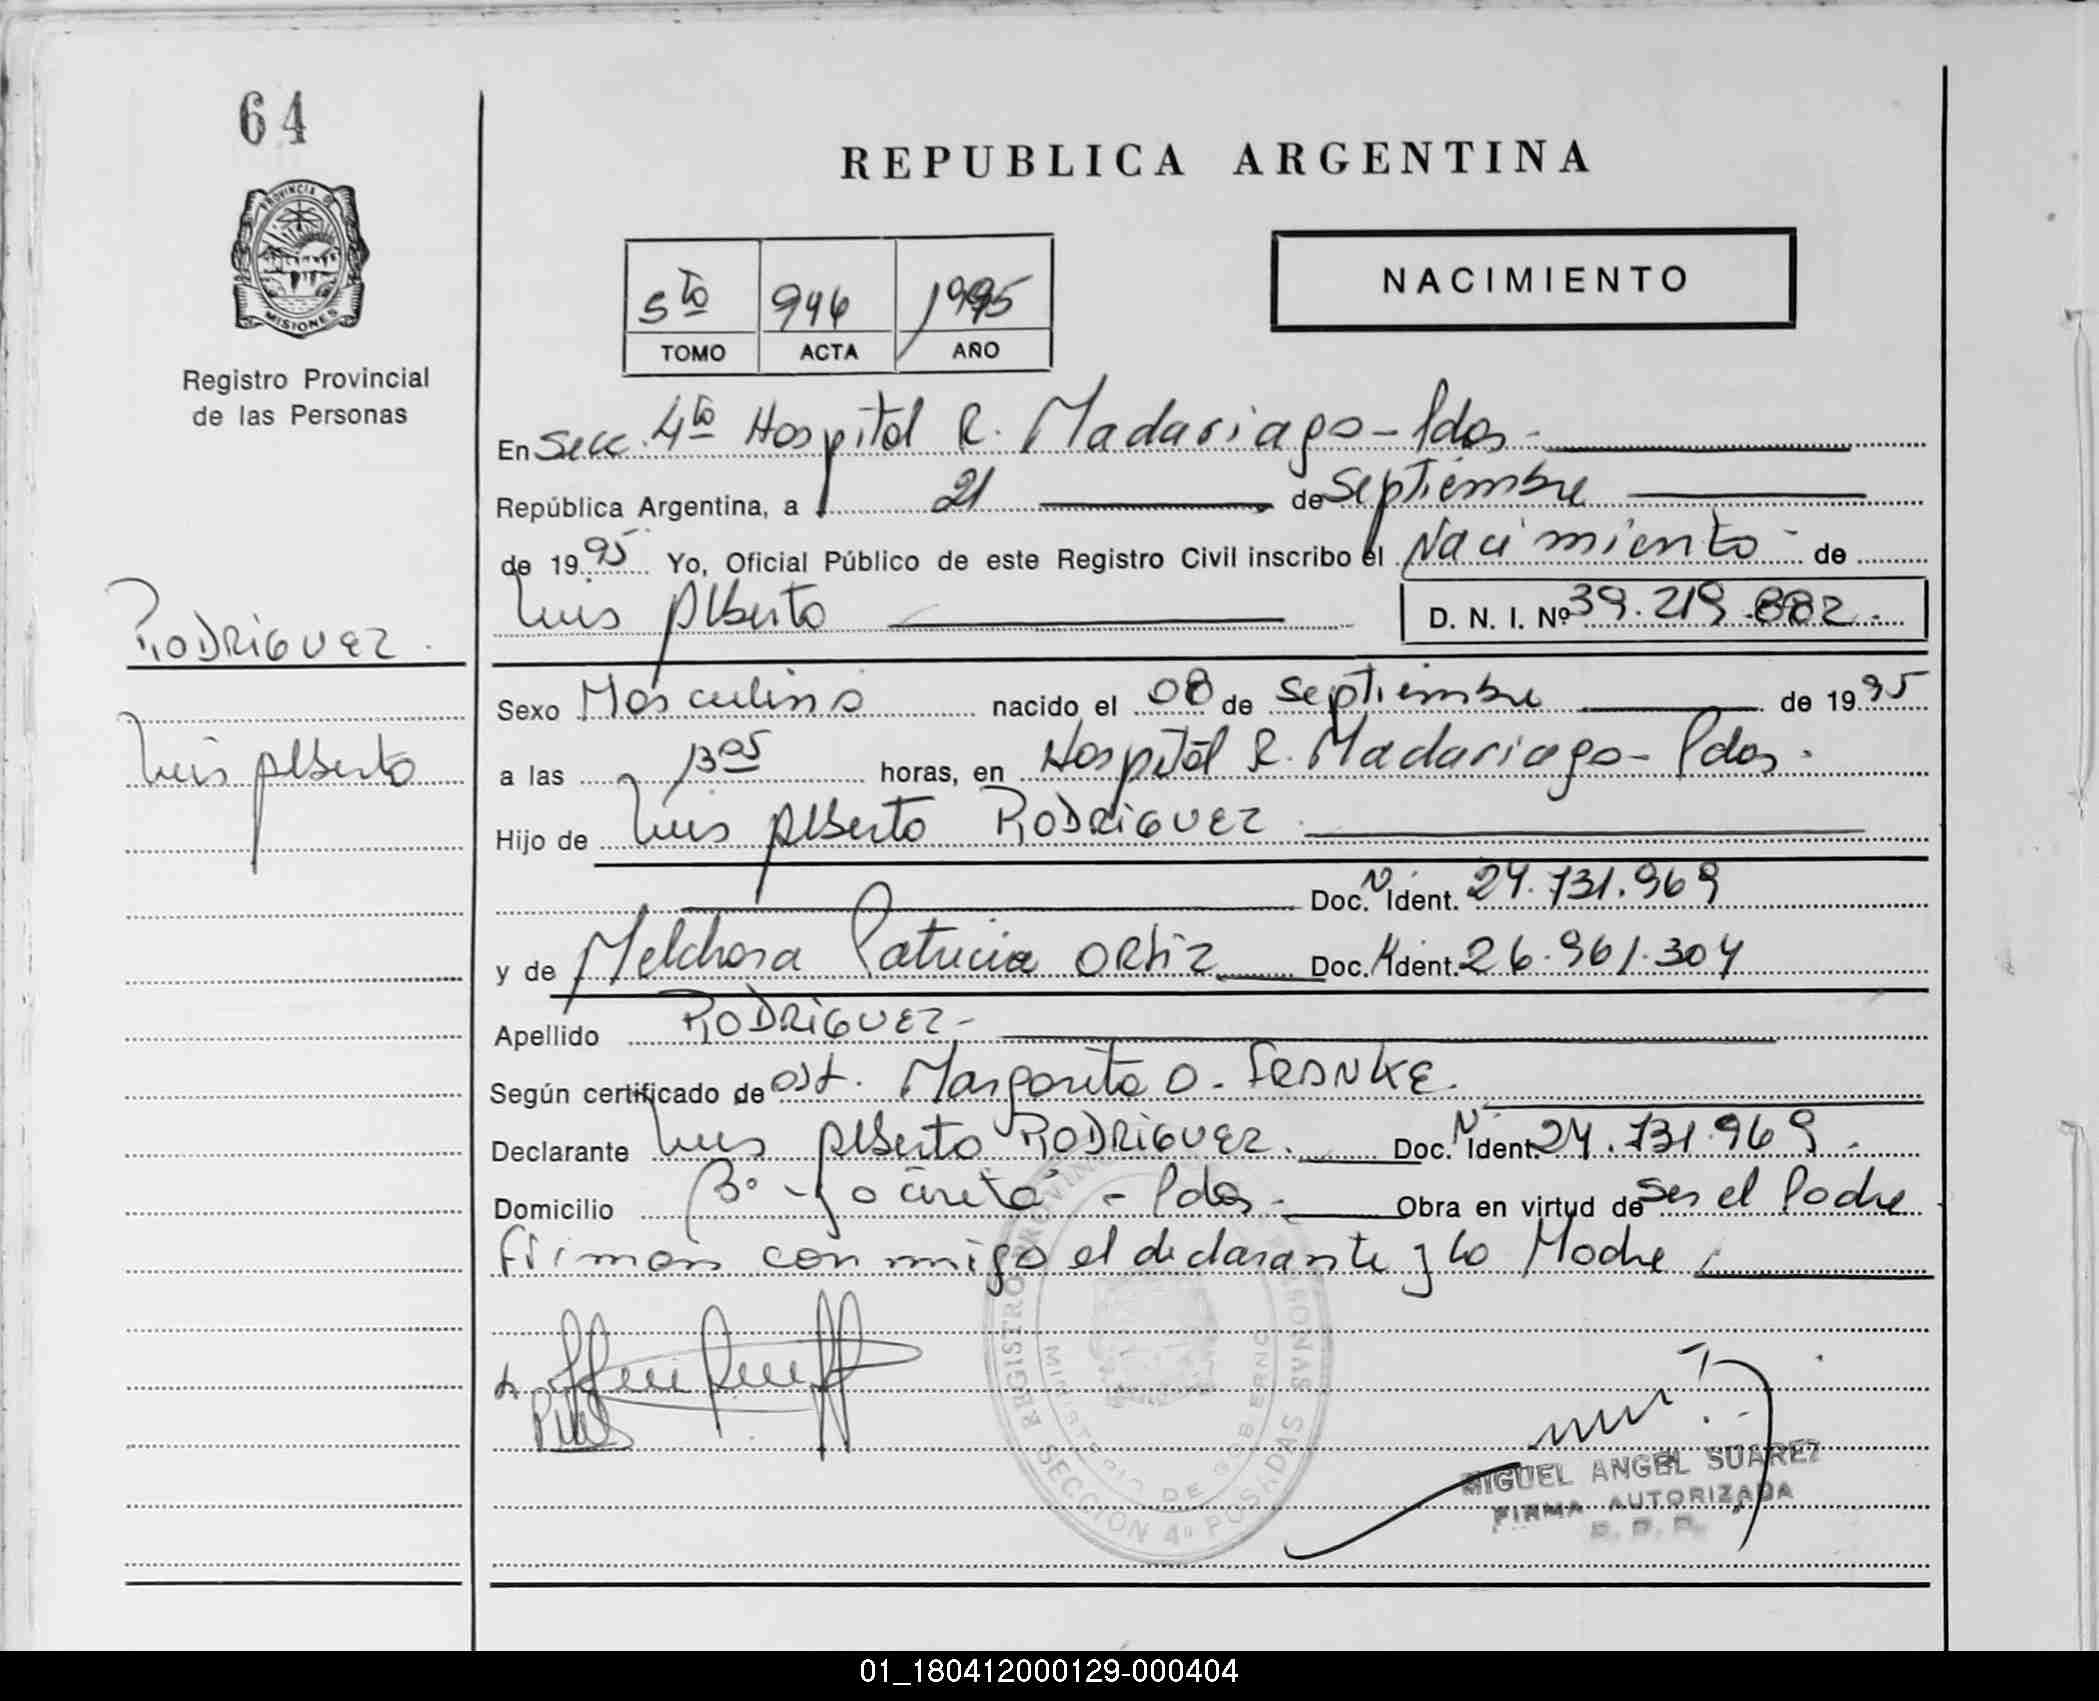 64
REPUBLICA ARGENTINA
PROVINCIA DE
MISIONES
Registro Provincial
de las Personas
5to 946 1995
TOMO ACTA AÑO
NACIMIENTO
En Secc. 4to Hospital R. Madariaga - Pdas -
República Argentina, a 21 de Septiembre
de 1995 Yo, Oficial Público de este Registro Civil inscribo el Nacimiento - de
Luis Alberto D. N. I. Nº 39.219.882.-
RODRIGUEZ.
Luis Alberto
Sexo Masculino nacido el 08 de Septiembre de 1995
a las 13 05 horas, en Hospital R. Madariaga - Pdas.
Hijo de Luis Alberto RODRIGUEZ.
Doc. N Ident. 24.731.969
y de Melchora Patricia ORtiz Doc. N Ident. 26.961.304
Apellido RODRIGUEZ -
Según certificado de Ost. Margarita O. FRANKE.
Declarante Luis Alberto RODRIGUEZ. Doc. N Ident. 24.731.969.
Domicilio Bº - Yacireta - Pdas. Obra en virtud de Ser el Padre
firman conmigo el declarante y la Madre
REGISTRO PROVINCIAL DE LAS PERSONAS
MINISTERIO DE GOBIERNO
SECCION 4ª POSADAS
MIGUEL ANGEL SUAREZ
FIRMA AUTORIZADA
R. P. P.
01_180412000129-000404